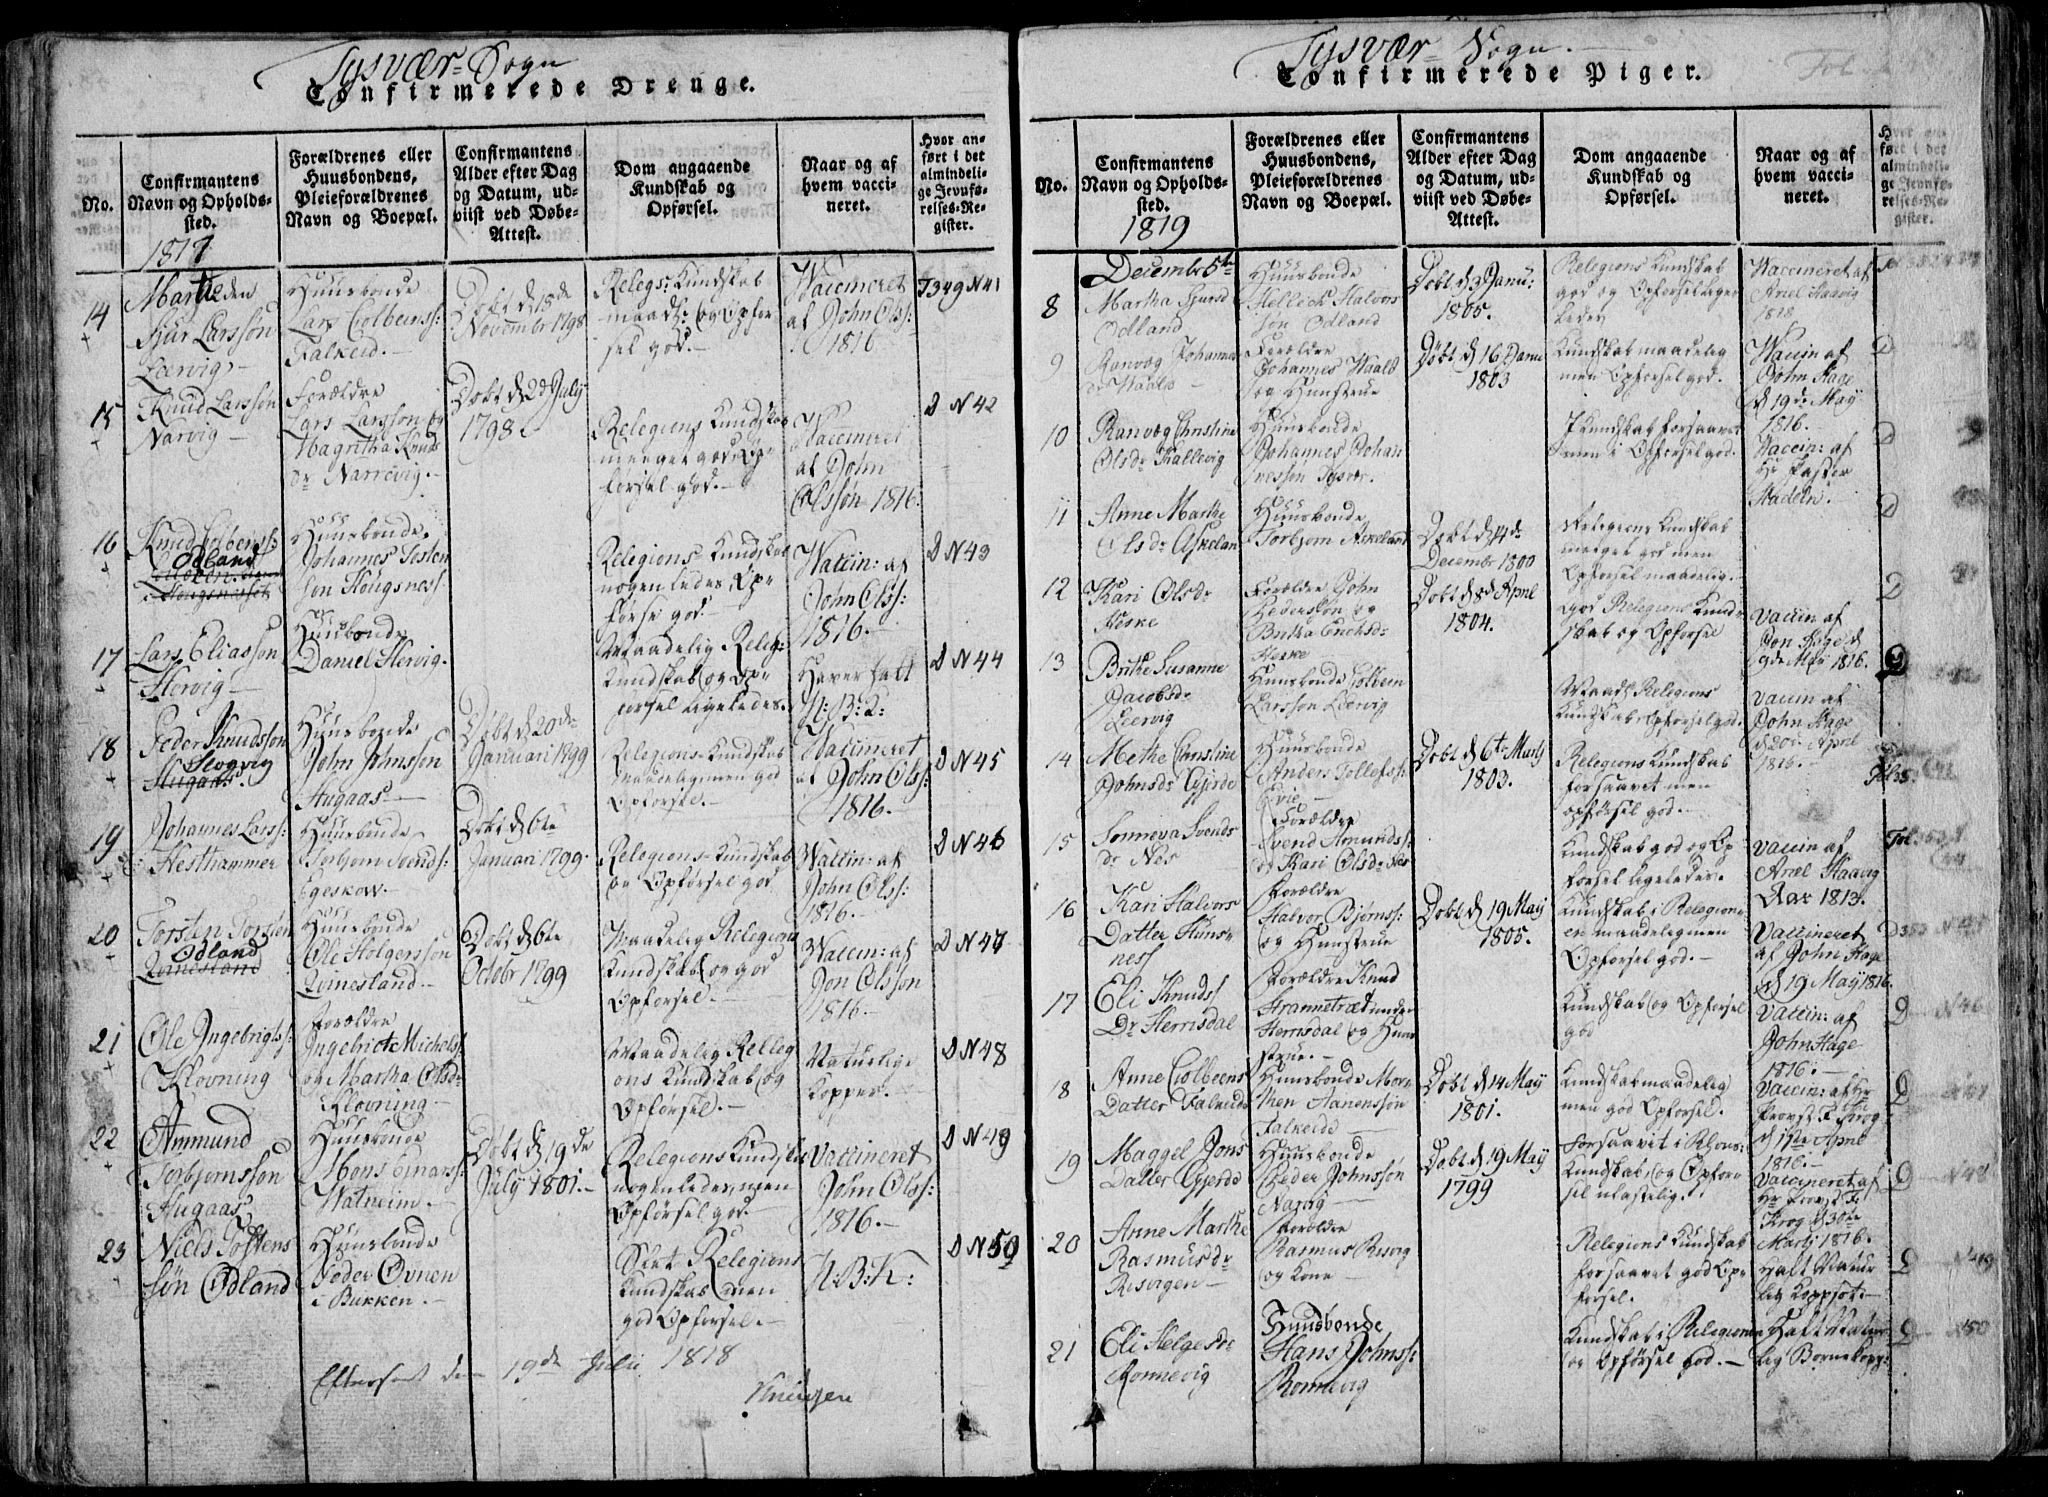 Tysvær Sogn
Confirmerede Drenge.
No.
Confirmantens
Navn og Opholds-
sted.
Forældrenes eller
Huusbondens,
Pleieforældrenes
Navn og Boepæl.
Confirmantens
Alder efter Dag
og Datum, ud-
viist ved Døbe-
Attest.
Dom angaaende
Kundskab og
Opførsel.
Naar og af
hvem vacci-
neret.
Hvor an-
ført i det
almindeli-
ge Jevnfø-
relses-Re-
gister.
1817
14
Sjur Larssøn
Leervig
Huusbonde
Lars Colbeins:
Falkeid.
Døbt d 15de
Novembr 1798
Religs: Kundskab
maadl: og Opfør
sel god.
Vaccineret
af John Olss:
1816
F 349 N 41
15
Knud Larssøn
Narvig
Forældre
Lars Larssøn og
Magretha Knuds
Dr Narrevig.
Døbt d 2d July
1798.
Religions Kundskab
meeget god, Op-
førsel god.
Vaccineret
af John
Olssøn 1816.
D N 42
16
Knud Colbens:
Odland
Huusbonde
Johannes Testen
søn Hougsness
Religions Kundskab
nogenledes, Op-
førse god.
Vaccin: af
John Olss:
1816.
D N 43
17
Lars Eliassøn
Hervig
Huusbonde
Daniel Hervig.
Maadelig Relig:
Kundskab og Op-
førsel ligeledes.
Haver haft
N: B: K:
D N 44
18
Peder Knudssøn
Hugaas.
Huusbonde
John Johnssøn
Hugaas
Døbt d 20de
Januari 1799
Religions Kundskab
Maadelig men god
Opførsel.
Vaccineret
af John Olss:
1816.
D N 45
19
Johannes Larss:
Hesthammer
Huusbonde
Torbjørn Svends:
Egeskow.
Døbt d 6te
Januari 1799.
Religions Kundskab
og Opførsel god
Vaccin: af
John Olss:
1816.
D N 46
20
Torsten Torsten
Odland
Qvinesland
Huusbonde
Ole Holgerssøn
Qvinesland.
Døbt d 6te
Octobr 1799
Maadelig Religions
Kundskab og god
Opførsel.
Vaccin: af
Jon Olssøn
1816.
D N 47
21
Ole Jngebrigts:
Kloyning
Forældre
Jngebrict Michels:
og Martha Olsdr
Klovning
Maadelig Relleg
ons Kundskab og
Opførsel.
Naturlige
Kopper.
D N 48
22
Ammund
Torbjørnssøn
Hugaas
Huusbonde
Mons Einars:
Walheim.
Døbt d 19de
July 1801.
Religions Kundskab
nogenledes, men
Opførsel god.
Vaccineret
John Olss:
1816.
D N 49
23
Niels Tostens
søn Odland
Huusbonde
Peder Ovnen
i Bukken.
Slet Religions
Kundskab men
god Opførsel.
N: B: K:
D N 50
Efterseet den 19de Julii 1818
Tysvær Sogn.
Confirmerede Piger.
Fol
No.
Confirmantens
Navn og Opholds-
sted.
Forældrenes eller
Huusbondens,
Pleieforældrenes
Navn og Boepæl.
Confirmantens
Alder efter Dag
og Datum, ud-
viist ved Døbe-
Attest.
Dom angaaende
Kundskab og
Opførsel.
Naar og af
hvem vacci-
neret.
1819
Decembr 5te
8
Martha Sjursd
Odland
Huusbonde
Hellick Halvors
søn Odland
Døbt d 3 Janu:
1805.
Religions Kundskab
god og Opførsel liige
ledes
Vaccineret af
Ariel Haavig
1818
9
Ranvog Johannes
dr Waale
Forældre
Johannes Waald
og Hunstrue
Døbt d 16 Janu
1803
Kundskab maadelig
men Opførsel god.
Vaccin af
John Hage
d 19de May
1816.
10
Ranvog Christine
Olsdr Kallevig
Huusbonde
Johannes Johan
nessøn Tysvær.
J Kundskab forsaavet
men i Opførsel god.
Vaccin: af
Hr Pastor
11
Anne Marthe
Olsdr Askelan
Huusbonde
Torbjøm Askeland
Døbt d 14de
Decembr 1800
Religions Kundskab
meeget god men
Opførsel maadelig.
12
Kari Olsdr
Heske
Forældre John
Pederssøn og
Britha Erichsdr
Heske
Døbt d 8d April
1804.
God Religions Kund-
skab og Opførsel
Vaccin af
Jon Hage d
9de May 1816.
13
Brithe Susanne
Jacobsdr
Leervig
Huusbonde Colbein
Larssøn Leervig
Maadl: Religions
Kundskab, Opførsel god.
Vaccin af
John Hage
d 20de April
1816.
14
Methe Christine
Johnsdr Gjerde
Huusbonde
Anders Tollefss:
Evie
Døbt d 6te Marty
1803.
Religions Kundskab
forsaavet men
opførsel god.
15
Sonneva Svends
dr Nes
Forældre
Svend Amunds:
og Kari Olsdr Nes
Kundskab god og Op-
førsel ligeledes.
Vaccin af
Ariel Haavig
Aar 1813.
16
Kari Halvors
Datter Huns-
ness
Forældre
Halvor Bjørnss:
og Hunstrue
Døbt d 19 May
1805.
Kundskab i Religion
en maadelig men
Opførsel god.
Vaccineret
af John Hage
d 19 May 1816.
17
Eli Knuds
Dr Herrisdal
Forældre Knud
Herrisdal og Hun
strue.
Kundskab og Opførsel
god
Vaccin: af
John Hage
1816.
18
Anne Colbeens
Datter Falkeide
Huusbonde Mor-
then Hanenssøn
Falkeide
Døbt d 14 May
1801.
Kundskab maadelig
men god Opførsel.
Vaccin: af Hr
Provst F. Krog
d 19te April
1816.
19
Maggel Jons
Datter Gjerde
Huusbonde
Peder Johnssøn
Narvig
Døbt d 19 May
1799
forsaavet i Rlons:
Kundskab, og Opfør-
sel ulastelig.
Vaccineret af
Hr Provst F.
Krog d 30te
Marty 1816.
20
Anne Marthe
Rasmusdr
Resvigen
Forældre
Rasmus Resvig
og Kone
Religions Kundskab
forsaavet god Op-
førsel.
Haft Natur
lig Koppsot.
21
Eli Helgesdr
Ronnevig
Huusbonde
Hans Johnss:
Ronnevig
Kundskab i Religionen
og Opførsel god.
Haft Natur
lig Børnekopp: